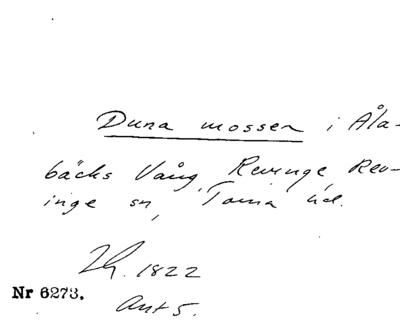 Duna mossen i Åla-
bäcks Vång, Revinge, Rev-
inge sn, Torna hd.
1822
Nr 6273.
Ant 5.